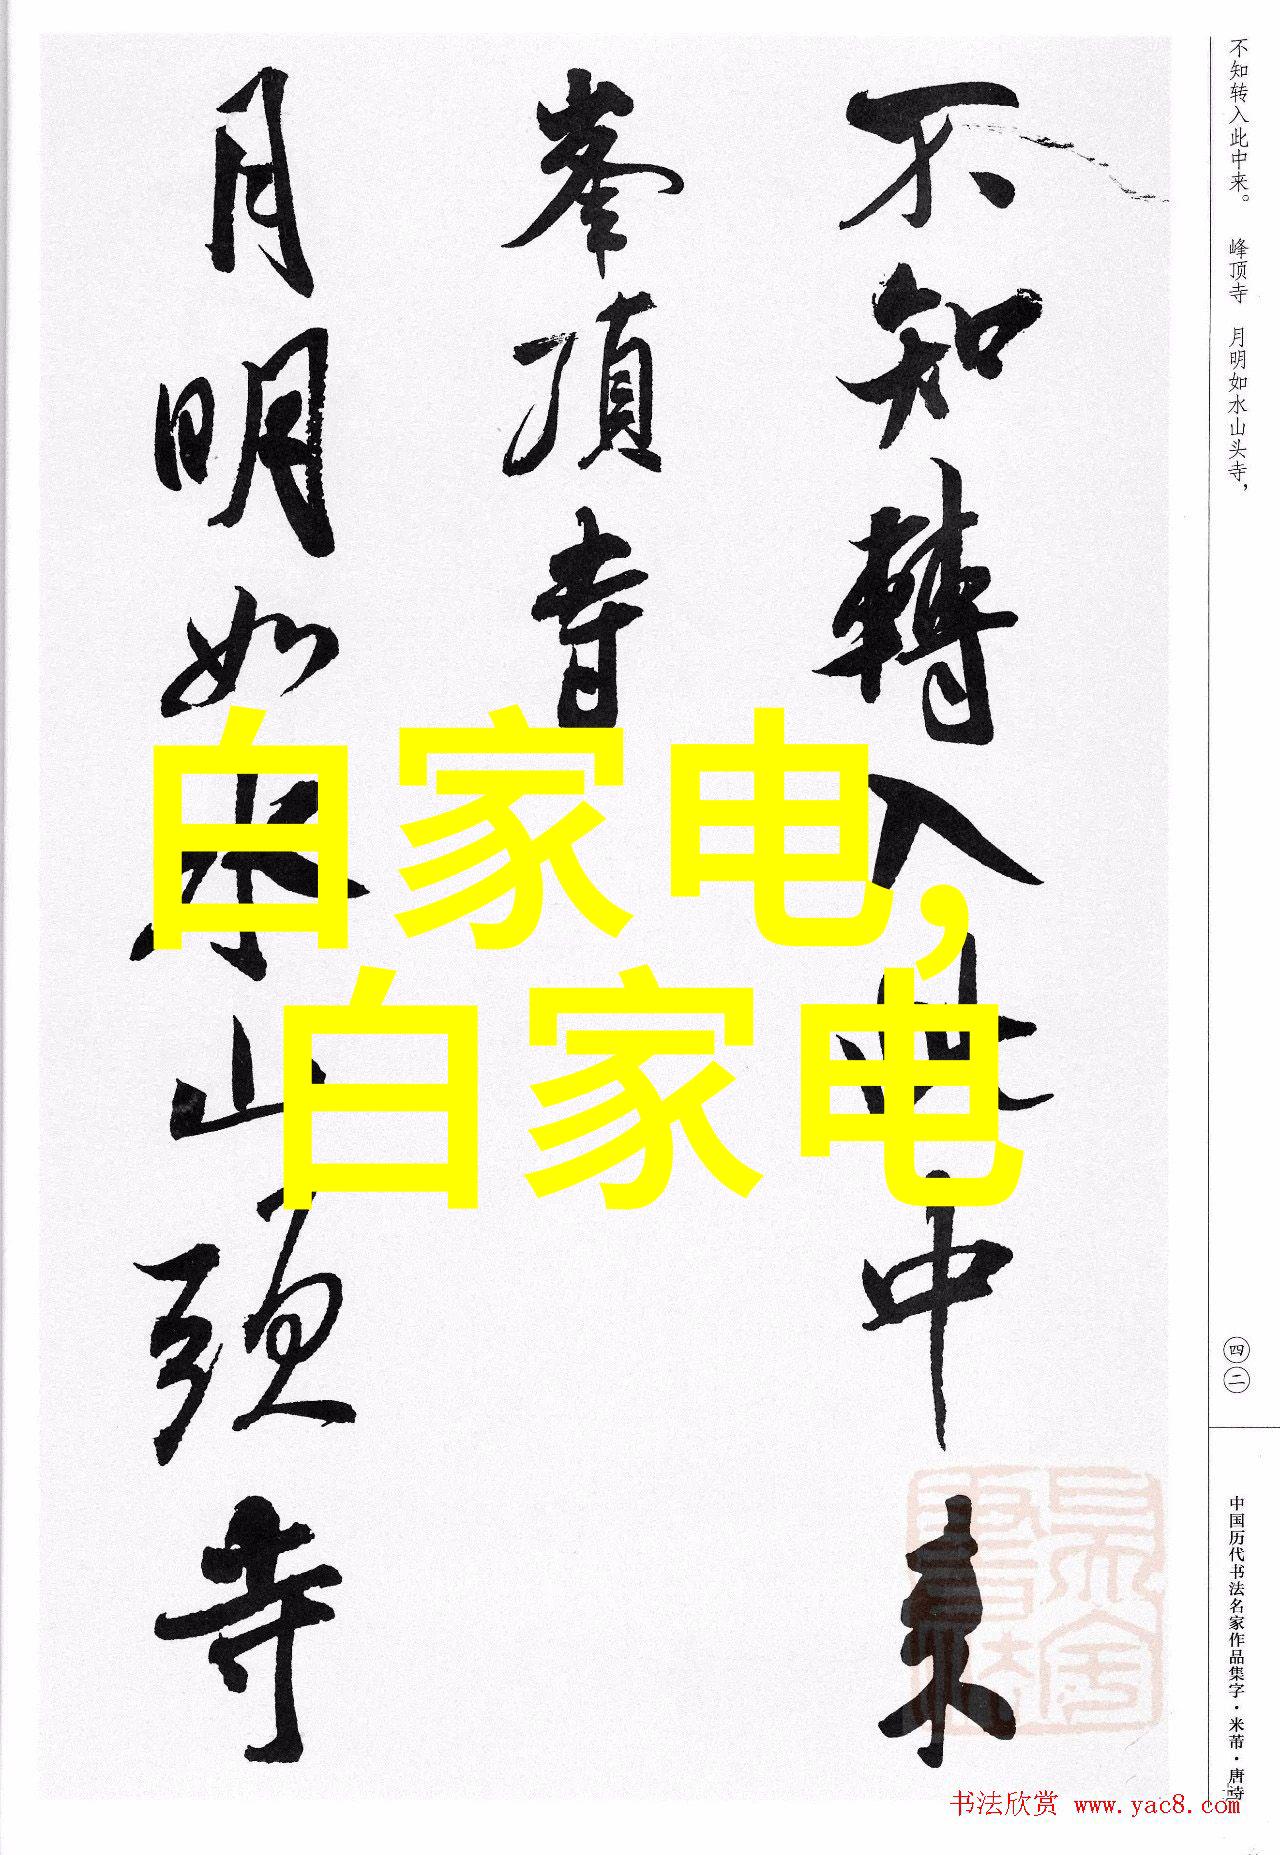 不知轉入此中来
峯頂寺
月明如水山頭寺
白家电，
白家电
不知转入此中来。 峰顶寺 月明如水山头寺，
四二
中国历代书法名家作品集字·米芾·唐诗
书法欣赏 www.yac8.com